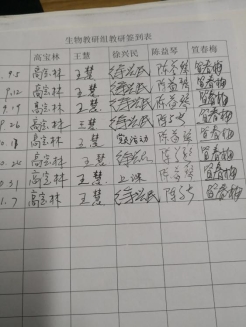 生物教研组教研签到表
高宝林 王慧 徐兴民 陈益琴 贺春梅
9.5 高宝林 王慧 徐兴民 陈益琴 贺春梅
9.12 高宝林 王慧 徐兴民 陈益琴 贺春梅
9.19 高宝林 王慧 徐兴民 陈益琴 贺春梅
9.26 高宝林 王慧 徐兴民 贺春梅
高宝林 王慧 活动 陈益琴 贺春梅
高宝林 王慧 徐兴民 贺春梅
高宝林 王慧 上课 陈益琴 贺春梅
1.7 高宝林 王慧 徐兴民 贺春梅